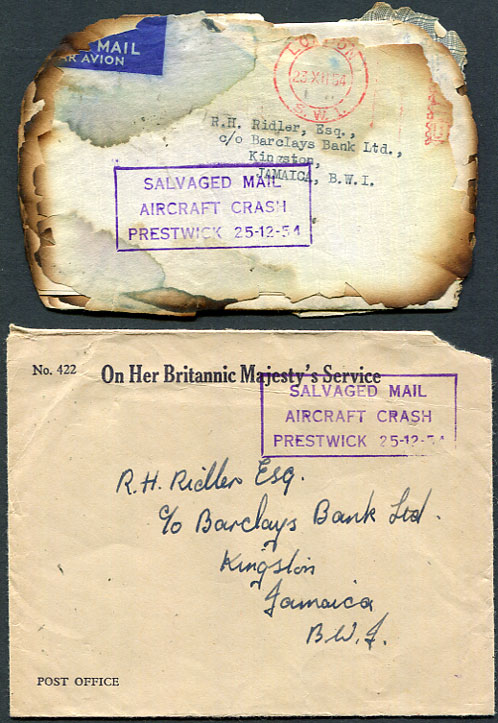 MAIL
AR AVION
LONDON
23 XII 54
S.W.1.
R.H. Ridler, Esq.,
c/o Barclays Bank Ltd.,
Kingston,
JAMAICA, B.W.I.
SALVAGED MAIL
AIRCRAFT CRASH
PRESTWICK 25-12-54
No. 422
On Her Britannic Majesty's Service
SALVAGED MAIL
AIRCRAFT CRASH
PRESTWICK 25-12-54
R.H. Ridler Esq.
c/o Barclays Bank Ltd.
Kingston
Jamaica
B.W.I.
POST OFFICE